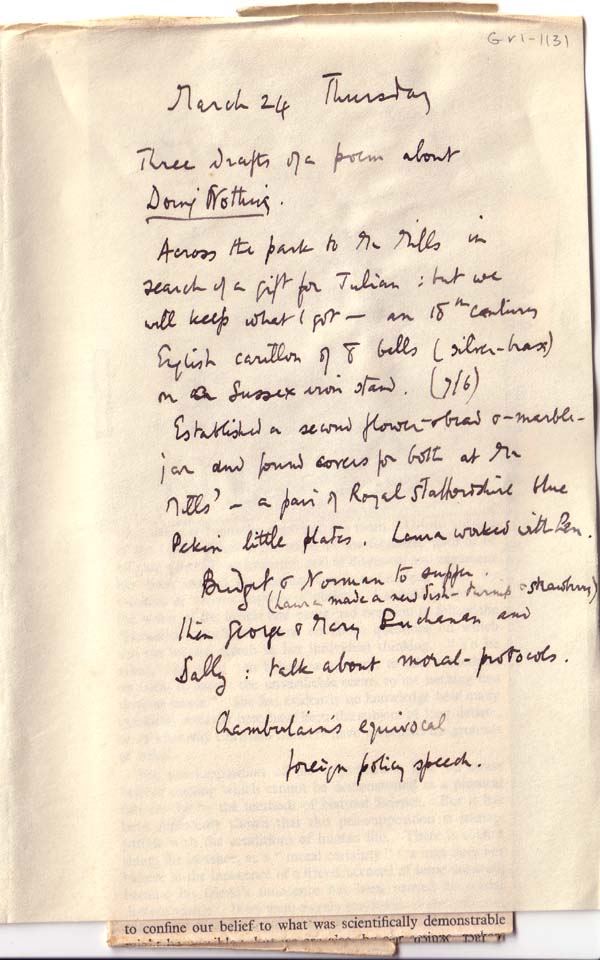 GV1-1131
March 24 Thursday
Three drafts of a poem about
Doing Nothing.
Across the park to Mr Mills in
search of a gift for Julian : but we
will keep what I got — an 18th century
English carillon of 8 bells (silver-brass)
on a Sussex iron stand. (7/6)
Established a second flower-&bead-&-marble-
jar and found covers for both at Mr
Mills' — a pair of Royal Staffordshire blue
Pekin little plates. Laura worked with Len.
Bridget & Norman to supper.
(Laura made a new dish - turnip & strawberry)
Then George & Mary Buchanan and
Sally : talk about moral-protocols.
Chamberlain's equivocal
foreign policy speech.
to confine our belief to what was scientifically demonstrable